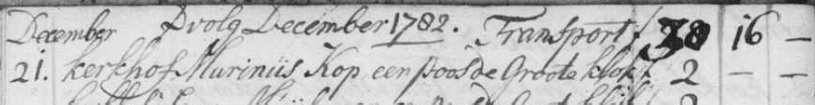 December Prolg December 1782. Transport f 38 16 —
21. kerkhof Marinus Kop een poos de Groote klok f 2 — —